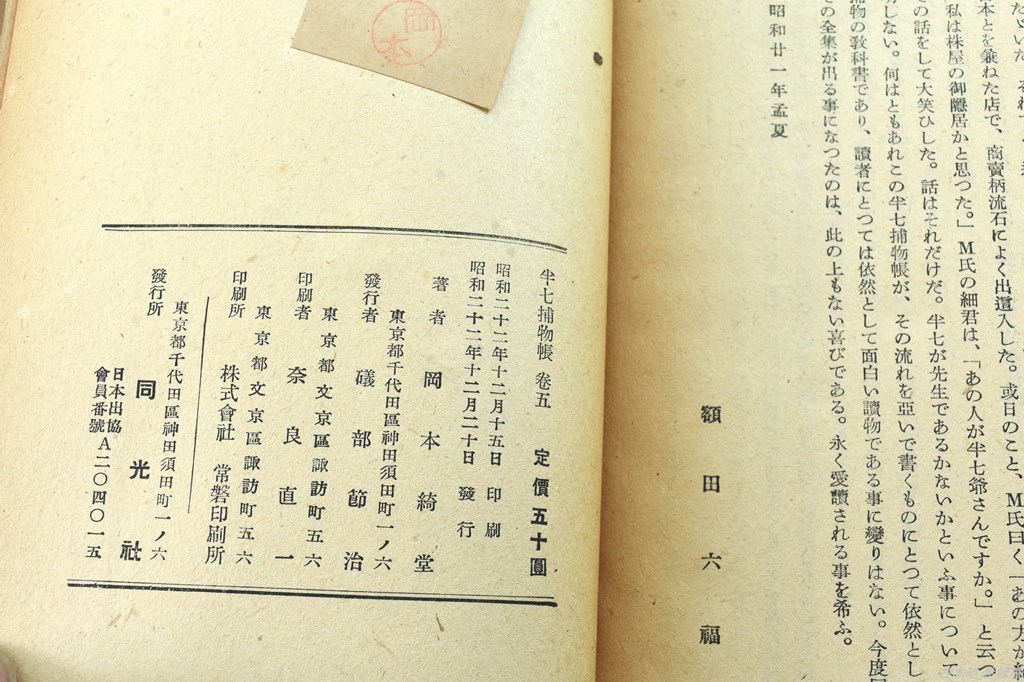 たいいた
本とを兼ねた店で、商賣柄流石によく出這入した。或日のこと、M氏曰く「あの方が
私は株屋の御隱居かと思つた。」M氏の細君は、「あの人が半七爺さんですか。」と云つ
の話をして大笑ひした。話はそれだけだ。半七が先生であるかないかといふ事について
しない。何はともあれこの半七捕物帳が、その流れを亞いで書くものにとつて依然とし
物の敎科書であり、讀者にとつては依然として面白い讀物である事に變りはない。今度
の全集が出る事になつたのは、此の上もない喜びである。永く愛讀される事を希ふ。
昭和廿一年孟夏
額田六福
岡本
半七捕物帳 卷五 定價五十圓
昭和二十二年十二月十五日 印刷
昭和二十二年十二月二十日 發行
著者 岡本綺堂
東京都千代田區神田須田町一ノ六
發行者 礒部節治
東京都文京區諏訪町五六
印刷者 奈良直一
東京都文京區諏訪町五六
印刷所 株式會社 常磐印刷所
東京都千代田區神田須田町一ノ六
發行所 同光社
日本出協
會員番號 A二〇四〇一五